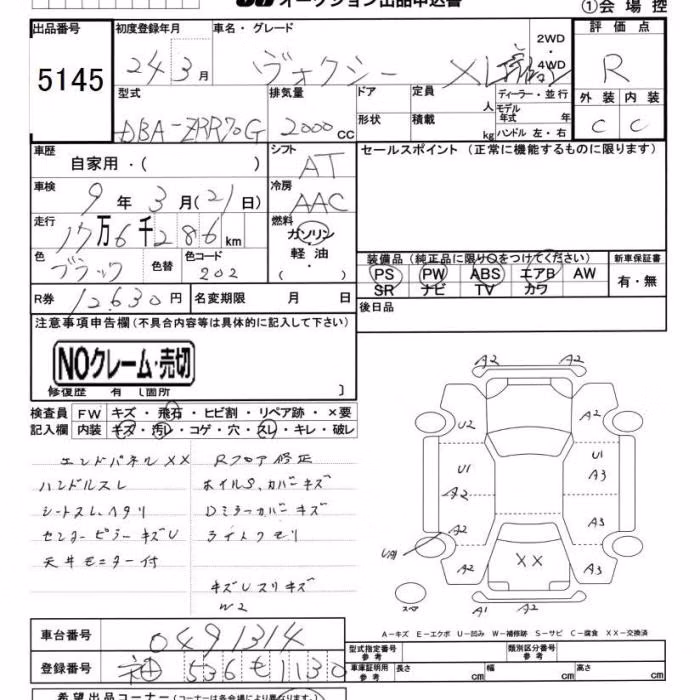 オークション出品申込書
①会場控
出品番号 初度登録年月 車名・グレード 評価点
5145 24 3月 ヴォクシー X 2WD ・ 4WD R
型式 排気量 ドア 定員 人 ディーラー・並行 外装 内装
DBA-ZRR70G 2000cc 形状 積載 kg モデル年式 年 ハンドル 左・右 C C
車歴 シフト セールスポイント (正常に機能するものに限ります)
自家用・( ) AT
車検 冷房
9年3月(21日) AAC
走行 燃料
17万6千286km ガソリン
色 色替 色コード 軽油 装備品(純正品に限り○をつけてください) 新車保証書
ブラック 202 ・( ) PS PW ABS エアB AW 有・無
SR ナビ TV カワ
R券 12630円 名変期限 月 日 後日品
注意事項申告欄(不具合内容等は具体的に記入して下さい)
NOクレーム・売切
修復歴 有 〔箇所 〕
検査員 FW キズ・飛石・ヒビ割・リペア跡・×要
記入欄 内装 キズ・汚レ・コゲ・穴・スレ・キレ・破レ
エンドパネルXX Rフロア修正
ハンドルスレ ホイルS、カバーキズ
シートスレ、ヘタリ Dミラーカバーキズ
センターピラーキズU ライトクモリ
天井モニター付
キズUスリキズ
W2
A2 A2
U2 A2
U1 U1
A2 A3
A2 A3
A2 XX A3
スペア A1 A2
A-キズ E-エクボ U-凹み W-補修跡 S-サビ C-腐食 XX-交換済
車台番号 0491314
型式指定番号 参考 類別区分番号 参考
登録番号 536 も 1130
車庫証明用 参考 長さ cm 幅 cm 高さ cm
希望出品コーナー(コーナーは各会場により異なります。)